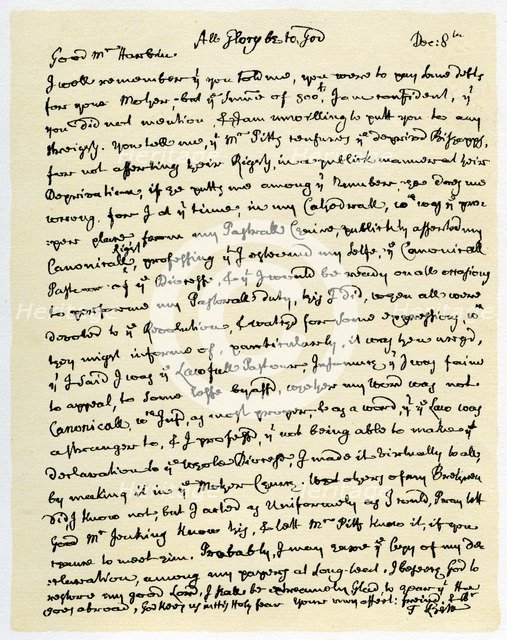 All Glory be to God
Dec: 8th
Good Mr Harbin.
I well remember yt you told me, you were to pay some debts
for your Mother, but ye summe of 500l, I am confident, yt
you did not mention, & I am unwilling to putt you to any
streights. You tell me, yt Mr Pitts censures ye deprived Bishopps,
for not asserting their Right, in a publick manner at their
Deprivation, if he putts me among yt Number, he does me
wrong. for I at yt time, in my Cathedrall, wch was ye pro-
per place, from my Pastorall Chaire, publickly asserted my
Canonicall right, professing yt I esteemed my selfe, ye Canonicall
Pastour of ye Diocesse, & yt I would be ready on all occasions
to performe my Pastorall Duty, this I did, when all were
devoted to ye Revolution, & watched for some expression wch
they might informe of, particularly, it was then urged,
yt I said I was ye Lawfull Pastour, Insomuch yt I was faine
to appeal, to some lesse byassd, whether my word was not
Canonicall, wch I used, as most proper, & as a word, yt ye Law was
a stranger to, & I professd, yt not being able to make yt
declaration to ye whole Diocese, I made it virtually to all,
by making it in ye Mother Church. What others of my Brethren
did, I know not, but I acted as Uniformely as I could, Pray lett
Good Mr Jenkins know this, & lett Mr Pitts know it, if you
chance to meet him. Probably, I may have ye Copy of my de-
claration, among my papers at Long-Leat. I beseech God to
restore my good Lord, I shall be extreamely Glad to hear yt He
goes abroad, God keep us in His Holy fear Your very affect: freind, & Br
T Kenn